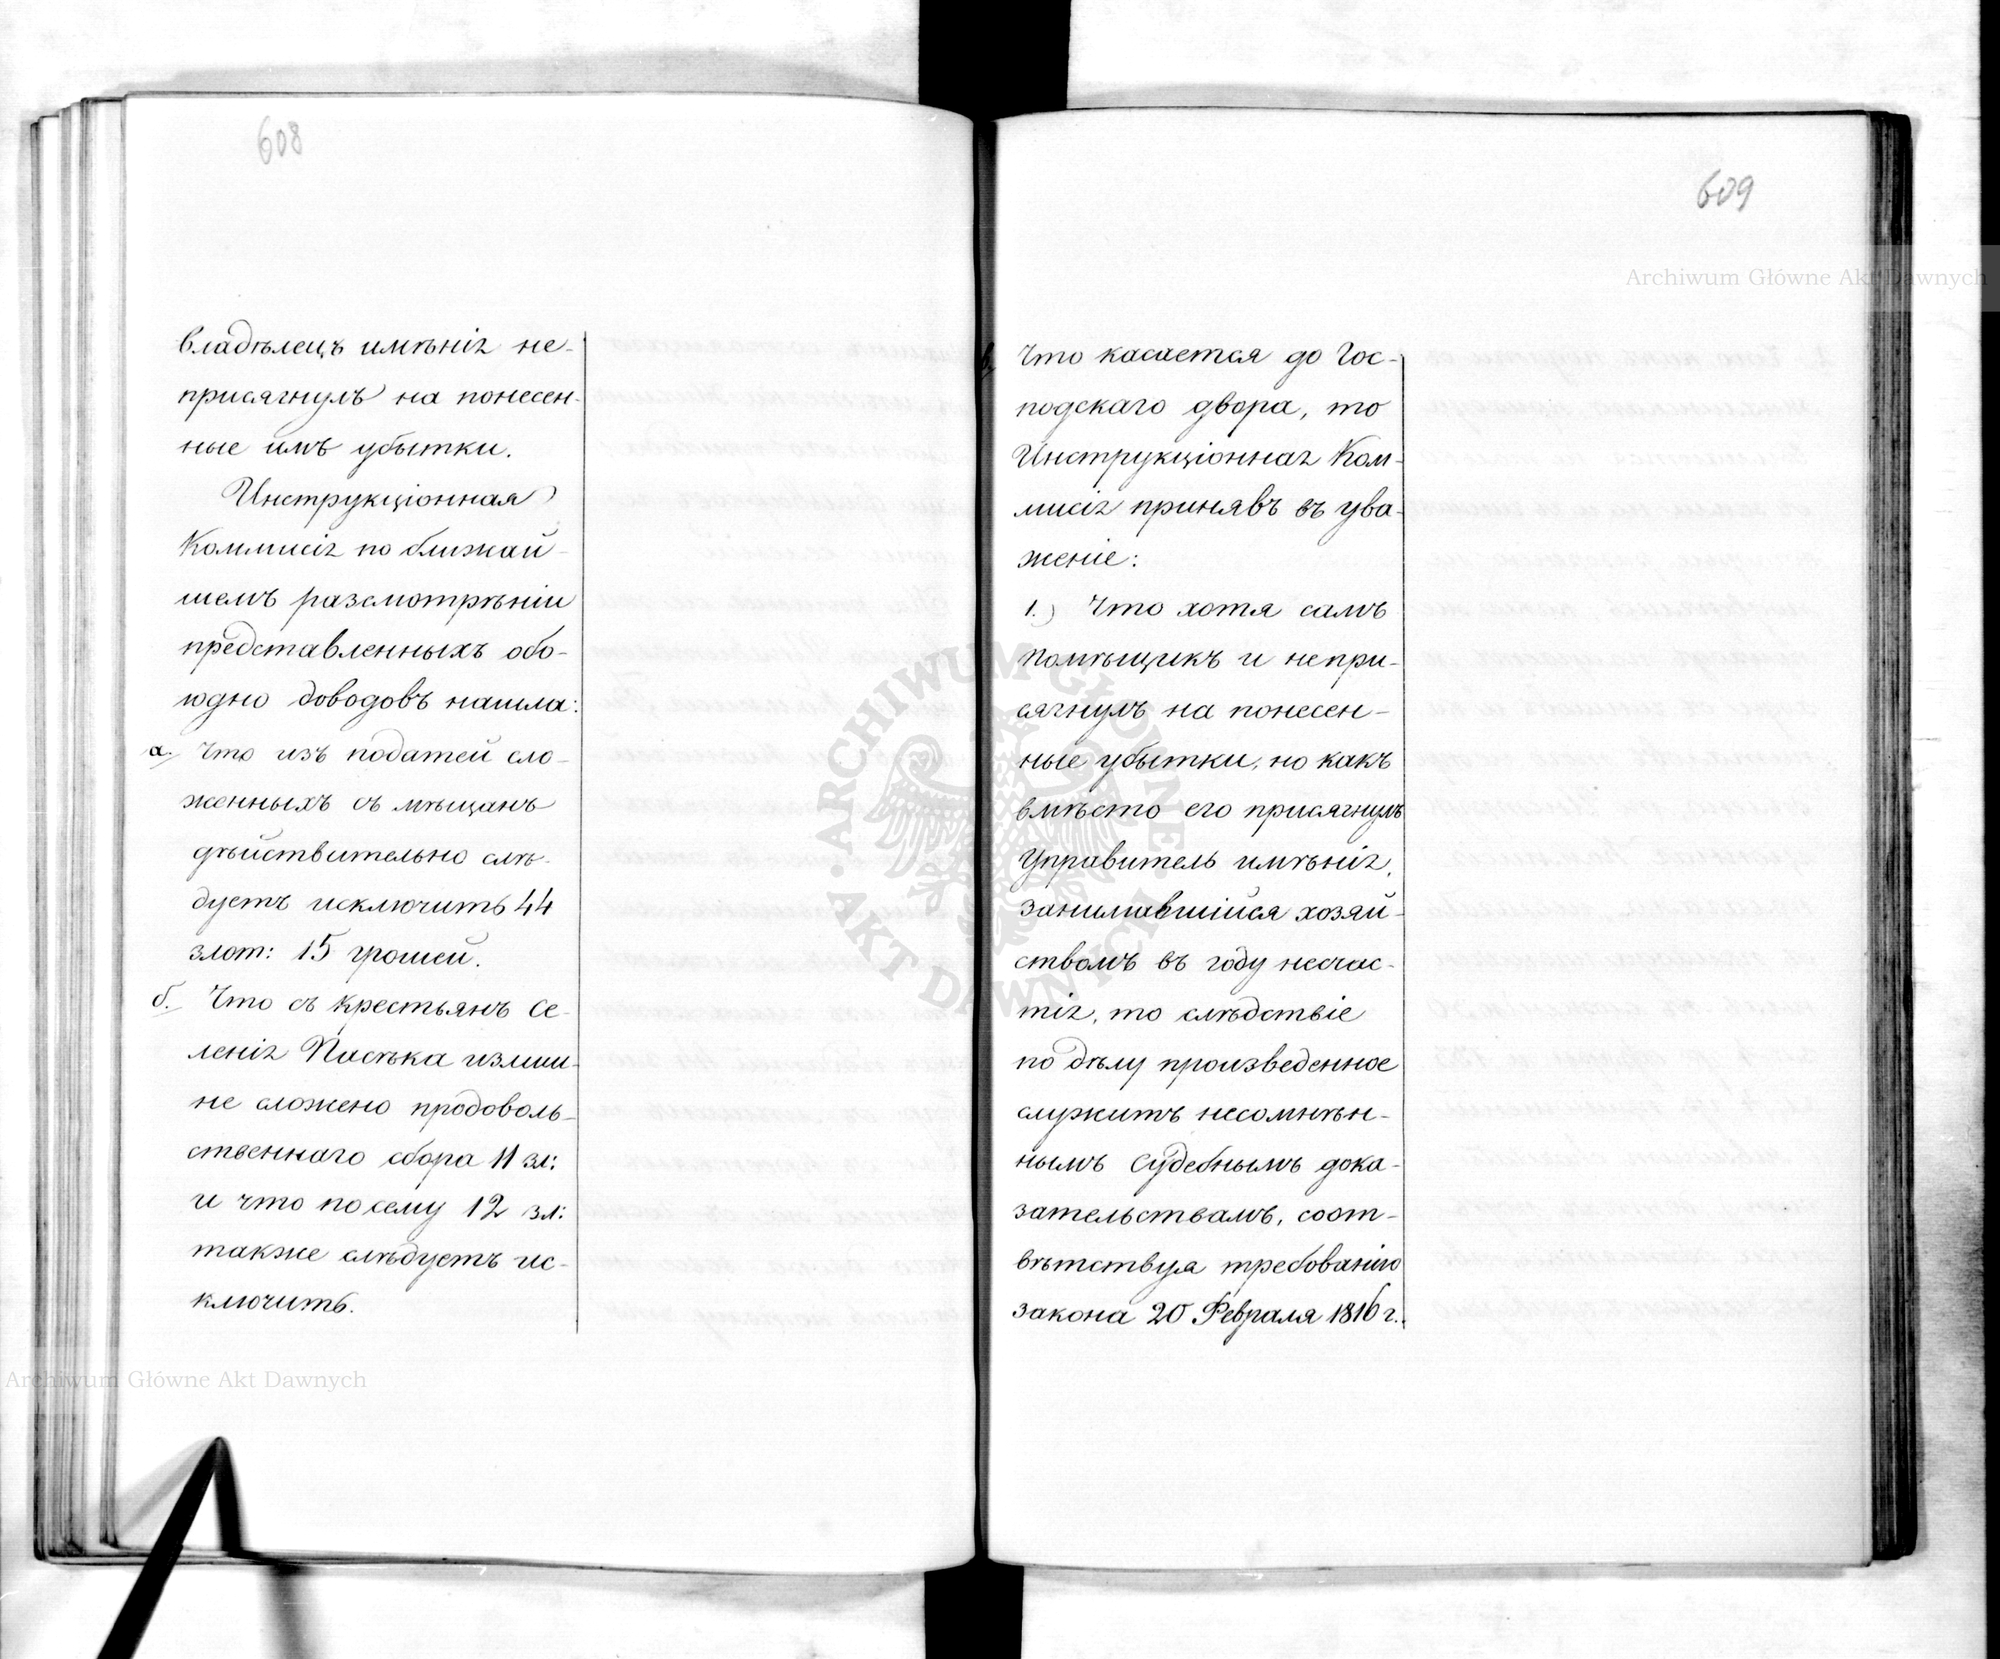 608
владѣлецъ имѣнія не-
присягнулъ на понесен-
ные имъ убытки.
Инструкціонная
Коммисія по ближай-
шемъ разсмотрѣніи
представленныхъ обо-
юдно доводовъ нашла:
а. Что изъ податей сло-
женныхъ съ мѣщанъ
дѣйствительно слѣ-
дуетъ исключить 44
злот: 15 грошей.
б. Что съ крестьянъ Се-
ленія Пасѣка излиш-
не сложено продоволь-
ственнаго сбора 11 зл:
и что посему 12 зл:
также слѣдуетъ ис-
ключить.
609
Archiwum Główne Akt Dawnych
в. Что касается до Гос-
подскаго двора, то
Инструкціонная Ком-
мисія принявъ въ ува-
женіе:
1.) Что хотя самъ
помѣщикъ и непри-
сягнулъ на понесен-
ные убытки, но какъ
вмѣсто его присягнулъ
Управитель имѣнія,
занимавшійся хозяй-
ствомъ въ году несчас-
тія, то слѣдствіе
по дѣлу произведенное
служитъ несомнѣн-
нымъ судебнымъ дока-
зательствамъ, соот-
вѣтствуя требованію
закона 20 Февраля 1816 г.
Archiwum Główne Akt Dawnych
ARCHIWUM GŁÓWNE AKT DAWNYCH